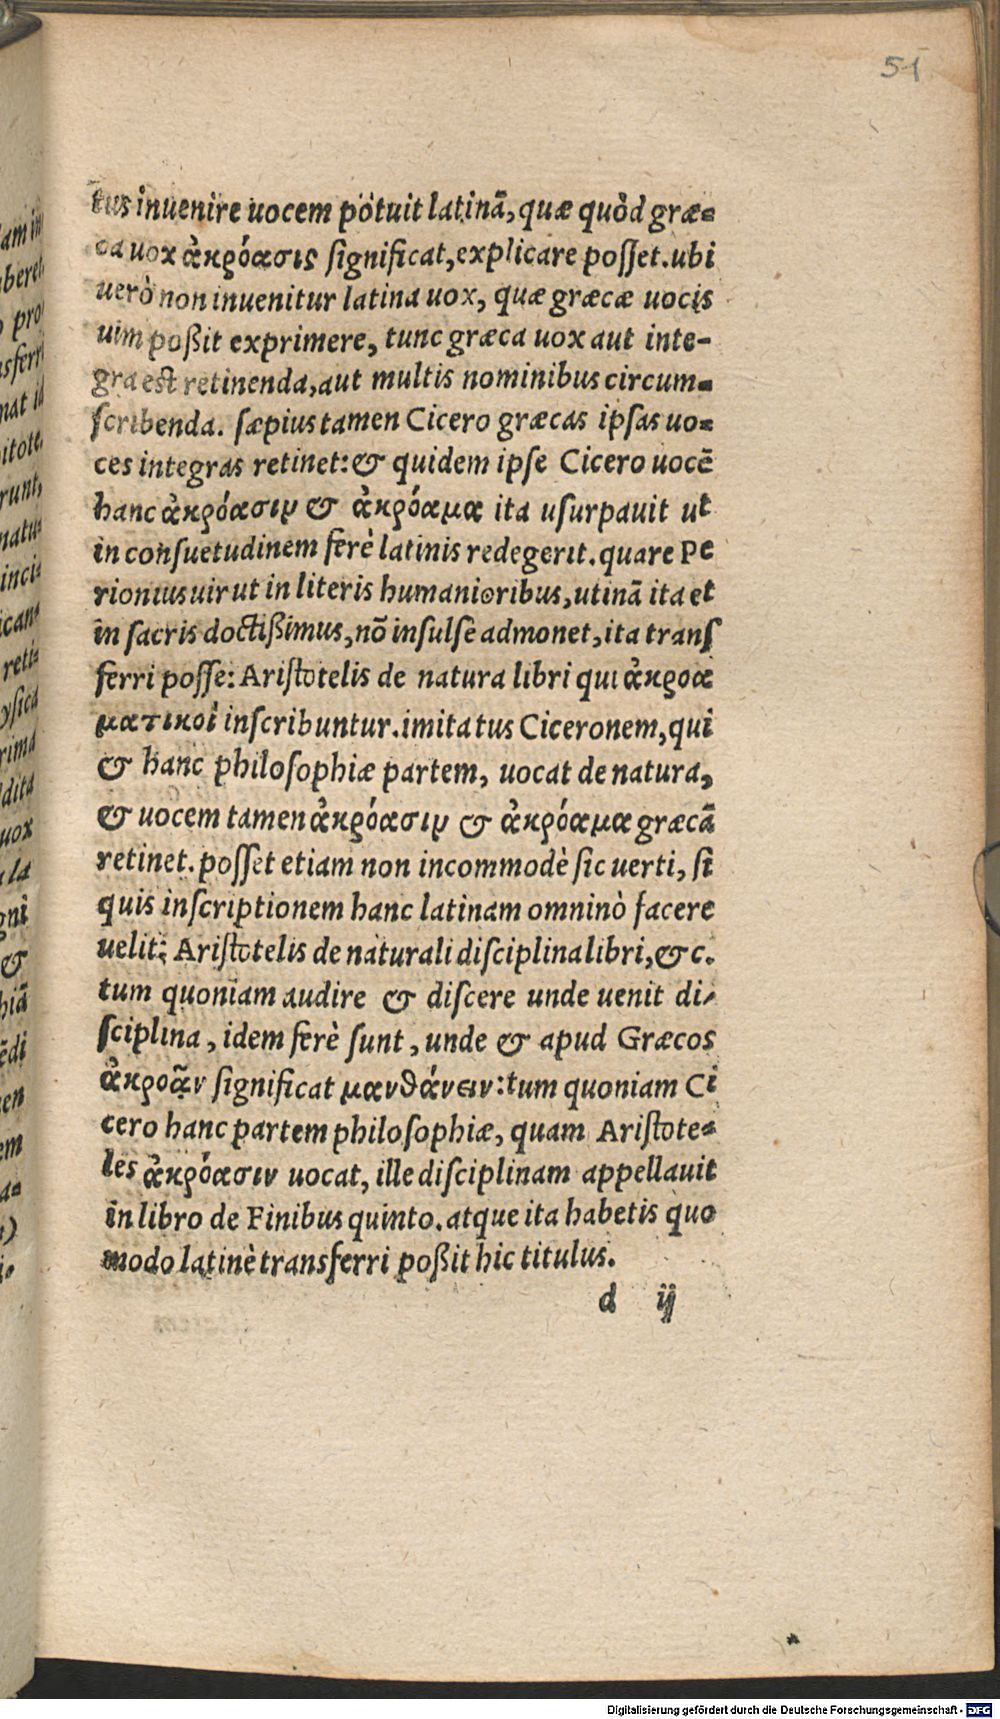 51
tus inuenire uocem potuit latinã, quæ quòd græ=
ca uox ἀκρόασις significat, explicare posset. ubi
uerò non inuenitur latina uox, quæ græcæ uocis
uim poßit exprimere, tunc græca uox aut inte-
gra est retinenda, aut multis nominibus circum=
scribenda. sæpius tamen Cicero græcas ipsas uo=
ces integras retinet: & quidem ipse Cicero uocẽ
hanc ἀκρόασιν & ἀκρόαμα ita usurpauit ut
in consuetudinem ferè latinis redegerit. quare Pe
rionius uir ut in literis humanioribus, utinã ita et
in sacris doctißimus, nõ insulse admonet, ita trans
ferri posse: Aristotelis de natura libri qui ἀκροα
ματικοὶ inscribuntur. imitatus Ciceronem, qui
& hanc philosophiæ partem, uocat de natura,
& uocem tamen ἀκρόασιν & ἀκρόαμα græcã
retinet. posset etiam non incommodè sic uerti, si
quis inscriptionem hanc latinam omninò facere
uelit: Aristotelis de naturali disciplina libri, & c.
tum quoniam audire & discere unde uenit di-
sciplina, idem ferè sunt, unde & apud Græcos
ἀκροᾶν significat μανθάνειν: tum quoniam Ci
cero hanc partem philosophiæ, quam Aristote=
les ἀκρόασιν uocat, ille disciplinam appellauit
in libro de Finibus quinto. atque ita habetis quo
modo latinè transferri poßit hic titulus.
d ij
Digitalisierung gefördert durch die Deutsche Forschungsgemeinschaft - DFG